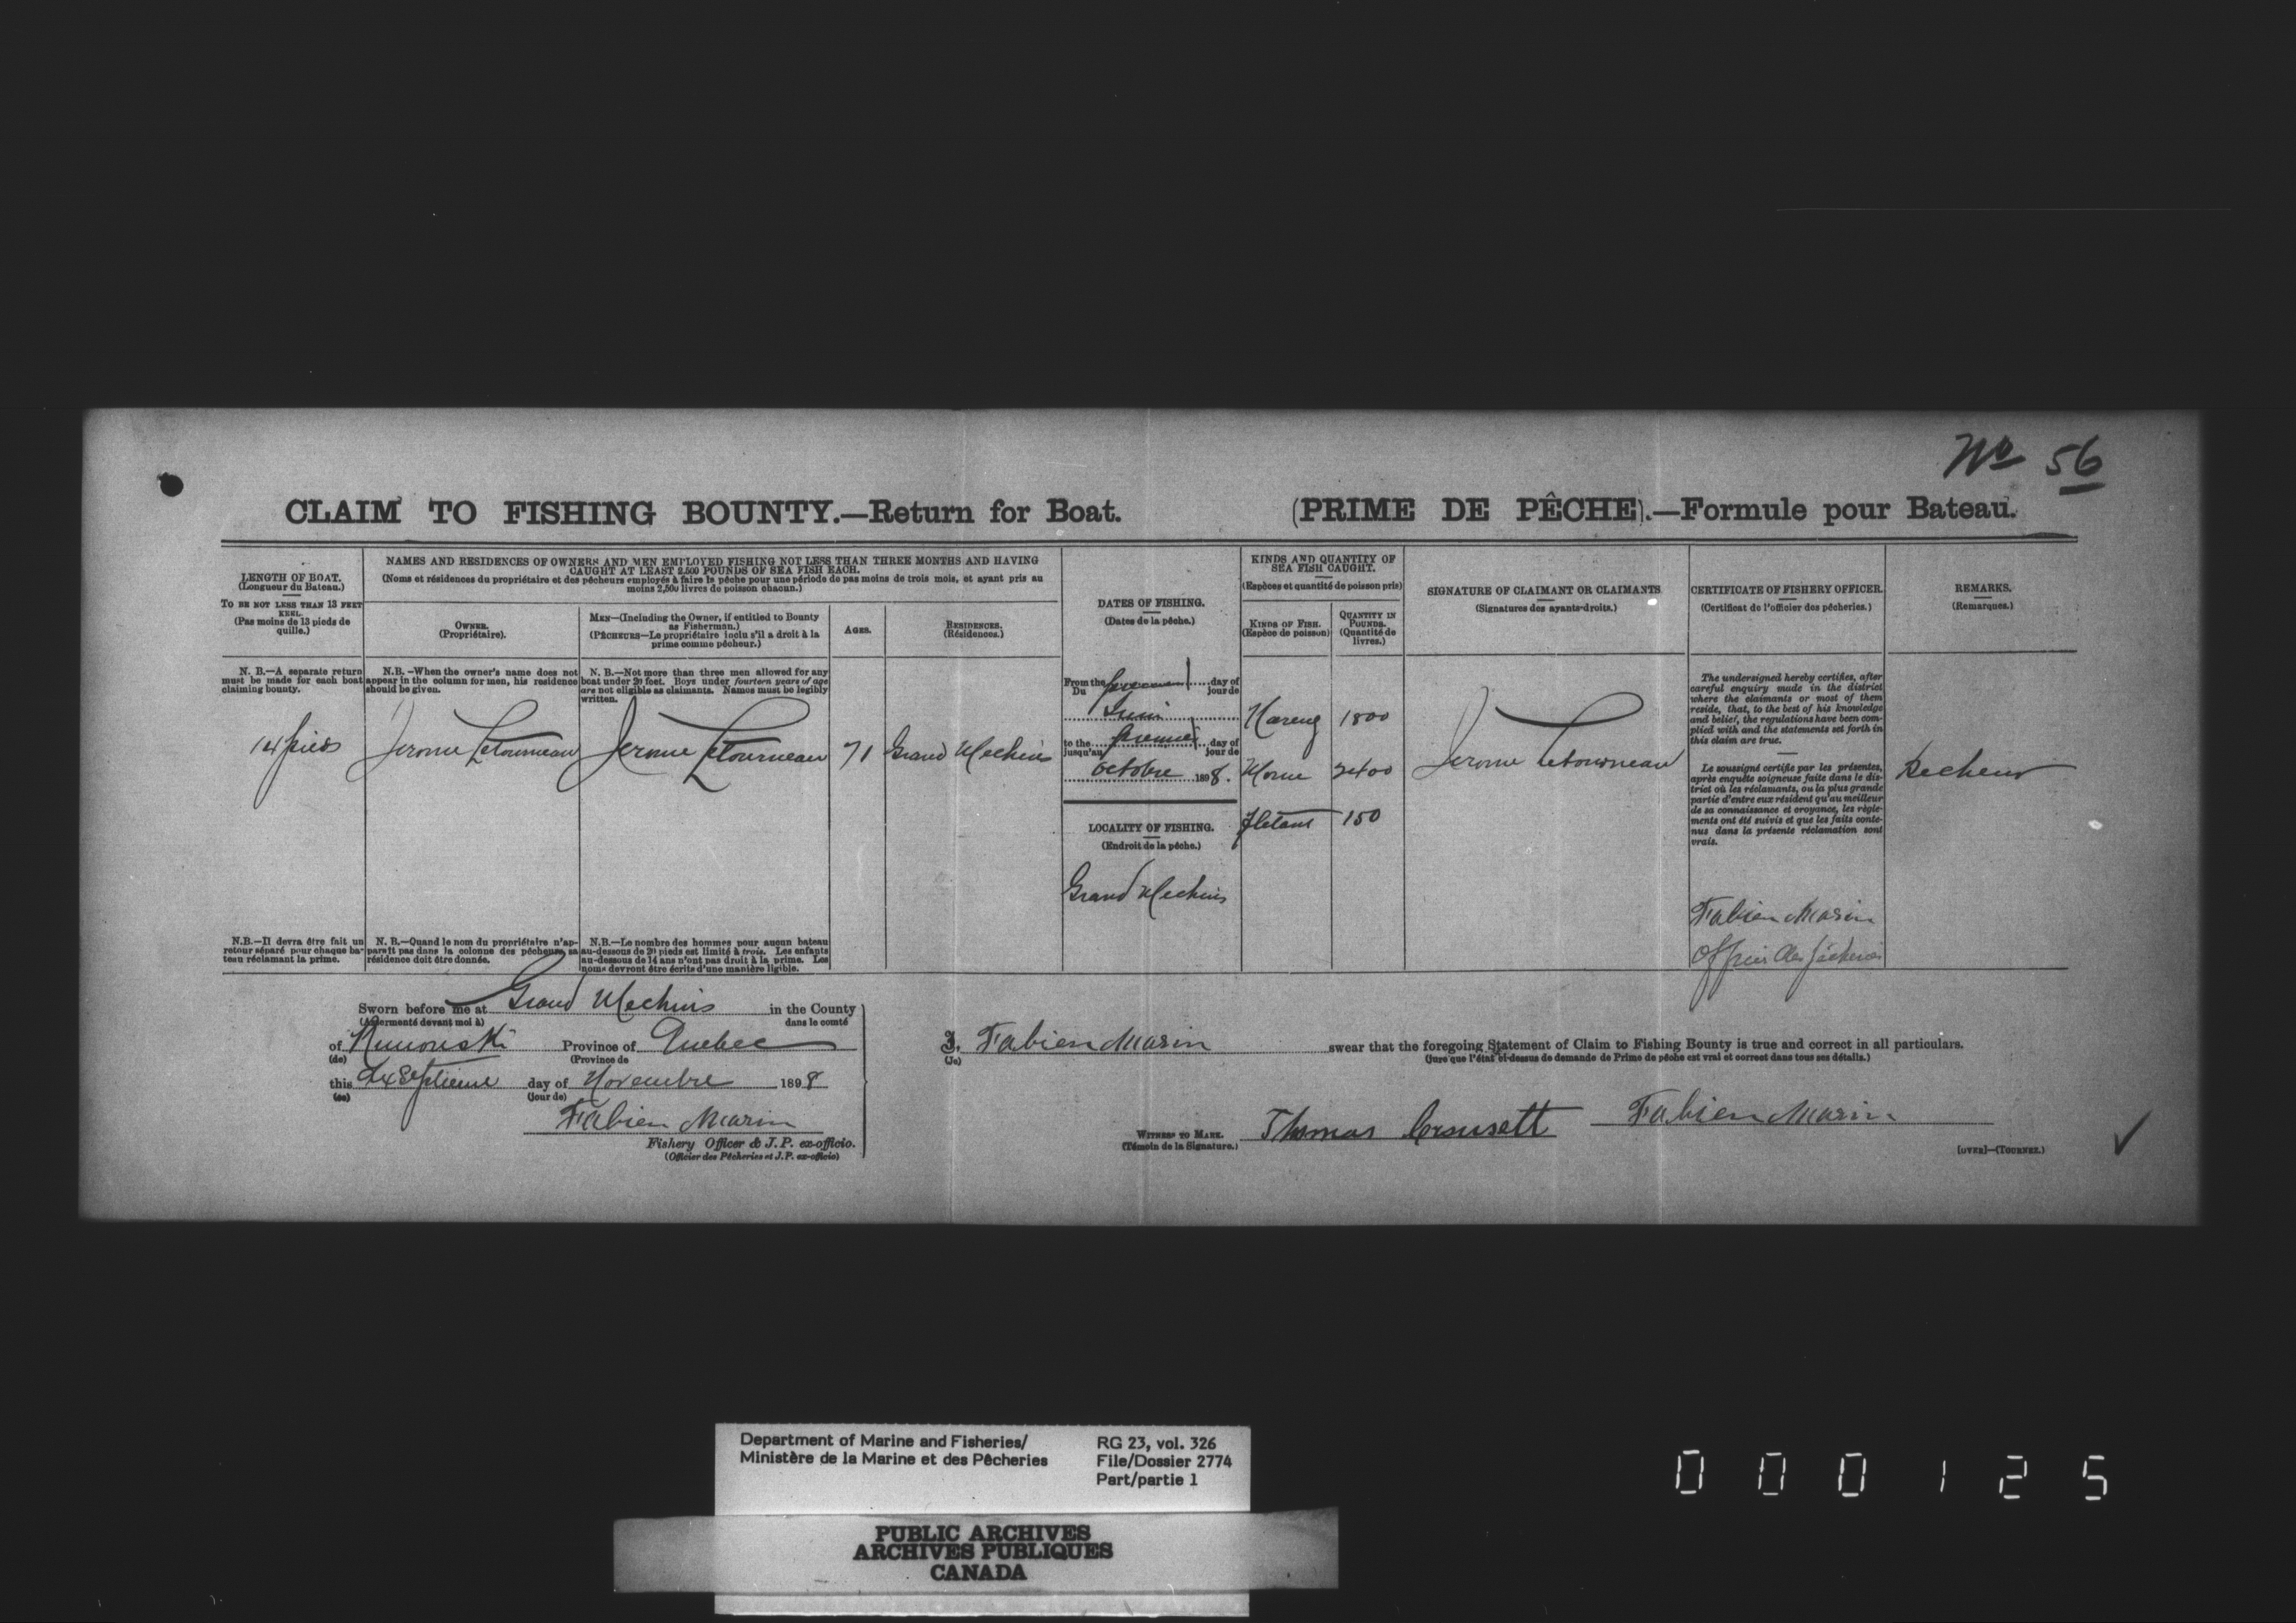 No 56
CLAIM TO FISHING BOUNTY.—Return for Boat. (PRIME DE PÊCHE).—Formule pour Bateau.
LENGTH OF BOAT.
(Longueur du Bateau.)
TO BE NOT LESS THAN 13 FEET
KEEL.
(Pas moins de 13 pieds de
quille.)
NAMES AND RESIDENCES OF OWNERS AND MEN EMPLOYED FISHING NOT LESS THAN THREE MONTHS AND HAVING
CAUGHT AT LEAST 2,500 POUNDS OF SEA FISH EACH.
(Noms et résidences du propriétaire et des pêcheurs employés à faire la pêche pour une période de pas moins de trois mois, et ayant pris au
moins 2,500 livres de poisson chacun.)
OWNER.
(Propriétaire).
MEN—(Including the Owner, if entitled to Bounty
as Fisherman.)
(PÊCHEURS—Le propriétaire inclu s'il a droit à la
prime comme pêcheur.)
AGES.
RESIDENCES.
(Résidences.)
DATES OF FISHING.
(Dates de la pêche.)
KINDS AND QUANTITY OF
SEA FISH CAUGHT.
(Espèces et quantité de poisson pris)
KINDS OF FISH.
(Espèce de poisson)
QUANTITY IN
POUNDS.
(Quantité de
livres.)
SIGNATURE OF CLAIMANT OR CLAIMANTS
(Signatures des ayants-droits.)
CERTIFICATE OF FISHERY OFFICER.
(Certificat de l'officier des pêcheries.)
REMARKS.
(Remarques.)
N. B.—A separate return
must be made for each boat
claiming bounty.
N.B.—When the owner's name does not
appear in the column for men, his residence
should be given.
N. B.—Not more than three men allowed for any
boat under 20 feet. Boys under fourteen years of age
are not eligible as claimants. Names must be legibly
written.
14 pieds
Jerome Letourneau
Jerome Letourneau
71
Grand Mechins
From the premier day of
Du jour de
Juin
to the premier day of
jusqu'au jour de
octobre 1898.
LOCALITY OF FISHING.
(Endroit de la pêche.)
Grand Mechins
Hareng 1800
Morue 2400
Fletant 150
Jerome Letourneau
The undersigned hereby certifies, after
careful enquiry made in the district
where the claimants or most of them
reside, that, to the best of his knowledge
and belief, the regulations have been com-
plied with and the statements set forth in
this claim are true.
Le soussigné certifie par les présentes,
après enquête soigneuse faite dans le dis-
trict où les réclamants, ou la plus grande
partie d'entre eux résident qu'au meilleur
de sa connaissance et croyance, les règle-
ments ont été suivis et que les faits conte-
nus dans la présente réclamation sont
vrais.
Fabien Marin
Officier des pêcheries
Pecheur
N.B.—Il devra être fait un
retour séparé pour chaque ba-
teau réclamant la prime.
N. B.—Quand le nom du propriétaire n'ap-
parait pas dans la colonne des pêcheurs, sa
résidence doit être donnée.
N.B.—Le nombre des hommes pour aucun bateau
au-dessous de 20 pieds est limité à trois. Les enfants
au-dessous de 14 ans n'ont pas droit à la prime. Les
noms devront être écrits d'une manière ligible.
Sworn before me at Grand Mechins in the County
(Assermenté devant moi à) dans le comté
of Rimouski Province of Quebec
(de) (Province de
this Dix Septieme day of Novembre 1898
(ce) (jour de)
Fabien Marin
Fishery Officer & J.P. ex-officio.
(Officier des Pêcheries et J.P. ex-officio)
I, Fabien Marin swear that the foregoing Statement of Claim to Fishing Bounty is true and correct in all particulars.
(Je) (jure que l'état ci-dessus de demande de Prime de pêche est vrai et correct dans tous ses détails.)
WITNESS TO MARK. Thomas Crousett Fabien Marin
(Témoin de la Signature.)
[OVER]—(TOURNEZ.)
Department of Marine and Fisheries/
Ministère de la Marine et des Pêcheries
RG 23, vol. 326
File/Dossier 2774
Part/partie 1
PUBLIC ARCHIVES
ARCHIVES PUBLIQUES
CANADA
000125